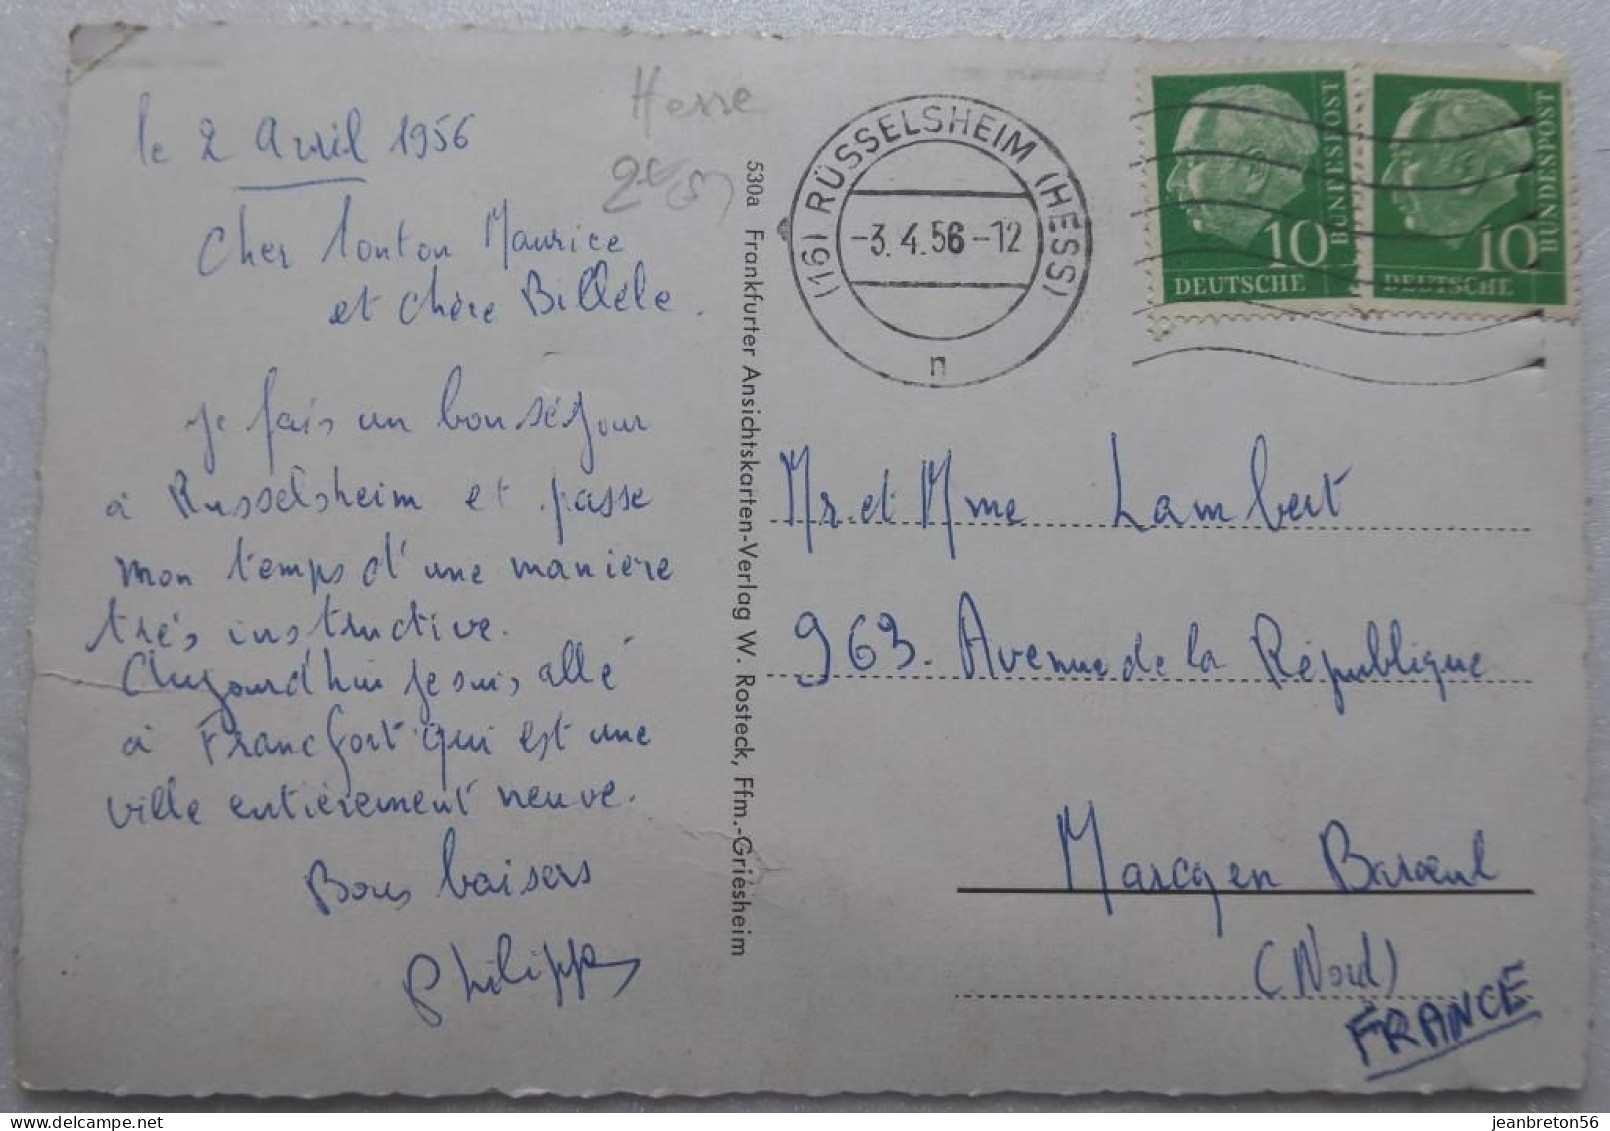 le 2 Avril 1956
Cher Tonton Maurice
et Chère Billèle.
Je fais un bon séjour
à Russelsheim et passe
mon temps d'une manière
très instructive.
Aujourd'hui je suis allé
à Francfort qui est une
ville entièrement neuve.
Bons baisers
Philippe
Hesse
530a Frankfurter Ansichtskarten-Verlag W. Rosteck, Ffm.-Griesheim
(16) RÜSSELSHEIM (HESS)
-3.4.56-12
n
10
DEUTSCHE
BUNDESPOST
10
DEUTSCHE
BUNDESPOST
Mr. et Mme Lambert
963. Avenue de la République
Marcq en Baroeul
(Nord)
FRANCE
jeanbreton56